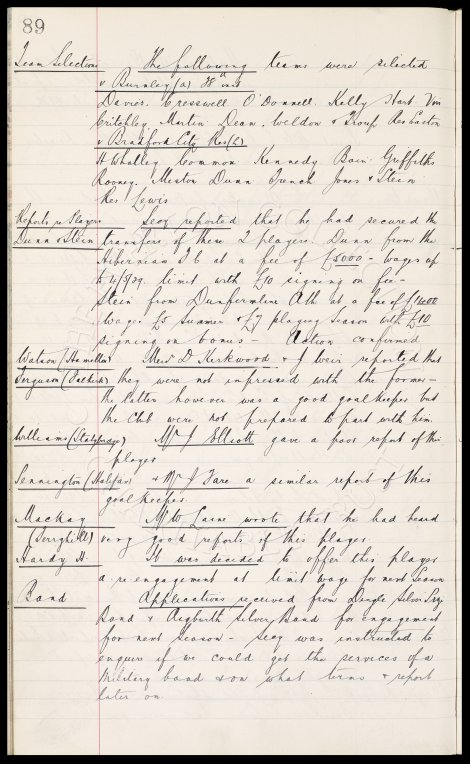 89
Team Selections The following teams were selected
v Burnley (a) 28th inst
Davies. Cresswell O'Donnell. Kelly Hart. Von
Critchley Martin Dean. Weldon & Troup Res Easton
v Bradford City Res (L)
H Whalley Common Kennedy Bain Griffiths
Rooney. Meston Dunn French Jones & Stein
Res/ Lewis
Reports re Players Secy reported that he had secured the
Dunn & Stein transfers of these 2 players. Dunn from the
Hibernian F C at a fee of £5000 - wages up
to 4/5/29. limit with £10 signing on fee -
Stein from Dunfermline Ath at a fee of £1600
wage £5 Summer & £7 playing Season with £10
signing on bonus - Action confirmed
Watson (Hamilton) Messrs D Kirkwood & J Weir reported that
Ferguson (Falkirk) they were not impressed with the former -
the latter however was a good goalkeeper but
the Club were not prepared to part with him.
Williams (Stalybridge) Mr J Elliott gave a poor report of this
player
Pennington (Halifax) & Mr J Fare a similar report of this
goalkeeper.
Mackay Mr W Laine wrote that he had heard
very good reports of this player.
Hardy H. It was decided to offer this player
a re engagement at limit wage for next Season
Band Applications received from Dingle Silver Prize
Band & Aigburth Silver Band for engagement
for next Season - Secy was instructed to
enquire if we could get the services of a
Military band & on what terms & report
later on.